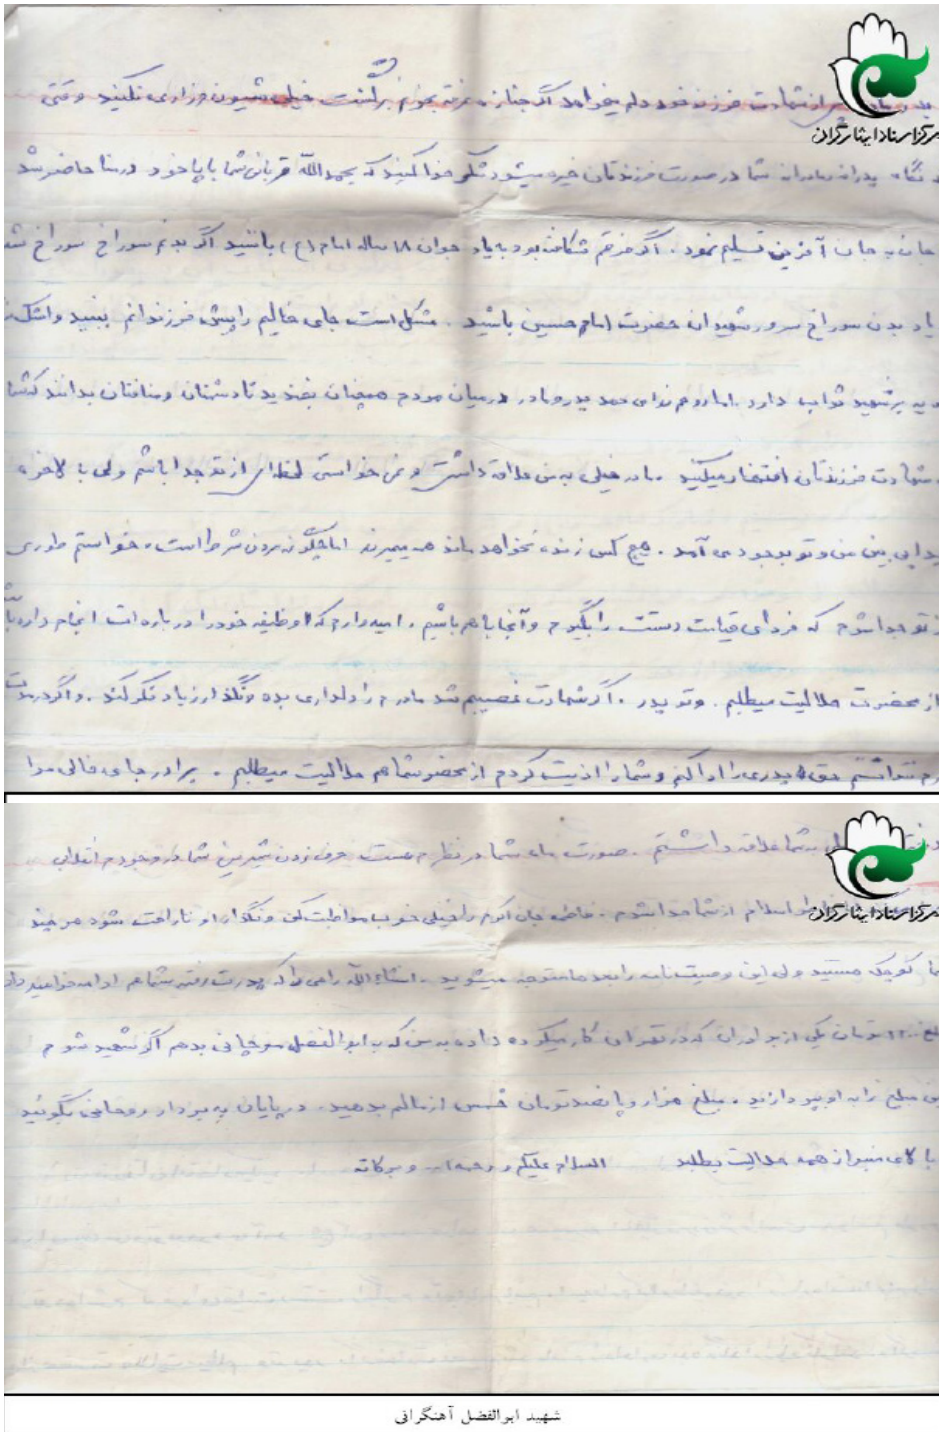 از شهادت فرزند خود دلم میخواهد اگر جنازه غرقه بخونم برگشت خیلی شیون و زاری نکنید وقتی
مرکز اسناد ایثارگران
نگاه پدران مادران شما در صورت فرزندتان خیره میشود شکر خدا کنید که بحمدالله قربانی شما با پا خود در منا حاضر شد
جان به جان آفرین تسلیم نمود. اگر فرقم شکافته بود به یاد جوان ۱۸ ساله امام (ع) باشید اگر بدنم سوراخ سوراخ شد
یاد بدن سوراخ سرور شهیدان حضرت امام حسین باشید. مشکل است جای خالیم را پیش فرزندانم ببینید و اشک
بر شهید ثواب دارد. اما روحم فدای پدر و مادر در میان مردم همچنان بخندید تا دشمنان و منافقان بدانند که شما
شهادت فرزندتان افتخار میکنید. مادر خیلی به من علاقه داشتی و نمی خواستی لحظه ای از تو جدا باشم ولی بالاخره
بین من و تو بوجود می آمد. هیچ کس زنده نخواهد ماند همه میمیرند اما چگونه مردن شرط است. خواستم طوری
تو جدا شوم که فردای قیامت دستت را بگیرم و آنجا با هم باشیم. امیدوارم که وظیفه خود را درباره ات انجام داده باشم
از محضرت حلالیت میطلبم. و تو پدر. اگر شهادت نصیبم شد مادرم را دلداری بده و نگذار زیاد فکر کند. و اگر در
نتوانستم حق پدری را ادا کنم و شما را اذیت کردم از محضر شما هم حلالیت میطلبم. برادر جای خالی مرا
به شما علاقه داشتم. صورت ماه شما در نظرم هست حرف زدن شیرین شما در وجودم انقلابی
مرکز اسناد ایثارگران
اسلام از شما جدا شوم. فاطمه جان اکرم را خیلی خوب مواظبت کن و نگذار او ناراحت شود هر چند
کوچک هستید ولی این وصیت نامه را بعدها متوجه میشوید. انشاءالله راهی را که پدرت رفته شما هم ادامه خواهید داد
تومان یکی از برادران که در تهران کار میکرد داده به من که به ابوالفضل بدهم اگر شهید شوم
مبلغ را به او بپردازید. مبلغ هزار و پانصد تومان خمس از مالم بدهید. در پایان به برادر روحانی بگوئید
بالای منبر از همه حلالیت بطلبد السلام علیکم و رحمه الله و برکاته
شهید ابوالفضل آهنگرانی